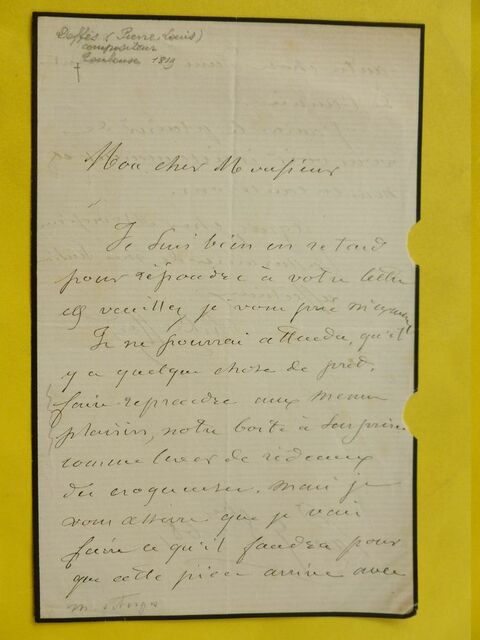 Deffès (Pierre-Louis)
compositeur
Toulouse 1819
Mon cher Monsieur
Je suis bien en retard
pour répondre à votre lettre
veuillez, je vous prie m'excuser
Je ne pourrai attendre, qu'il
y a quelque chose de prêt.
faire reprendre aux menus
plaisirs, notre boite à surprise
comme lever de rideaux
du croquemitaine. mais je
vous assure que je vais
faire ce qu'il faudra pour
que cette pièce arrive avec